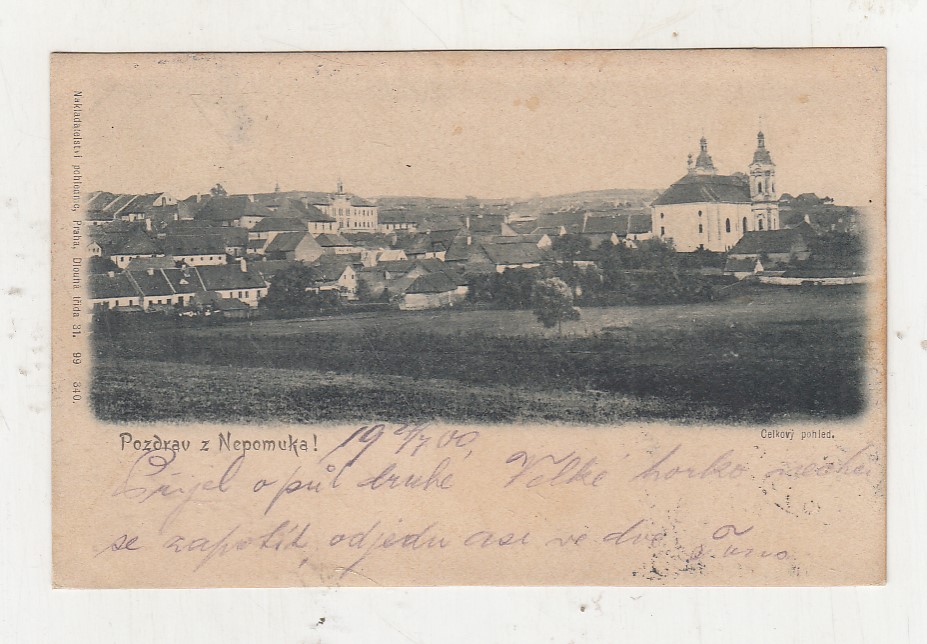 Nakladatelství pohlednic, Praha, Dlouhá třída 31. 99 340.
Pozdrav z Nepomuka!
Celkový pohled.
19 21/7 00
Přijel o půl druhé Velké horko
se zapotit, odjedu asi ve dvě